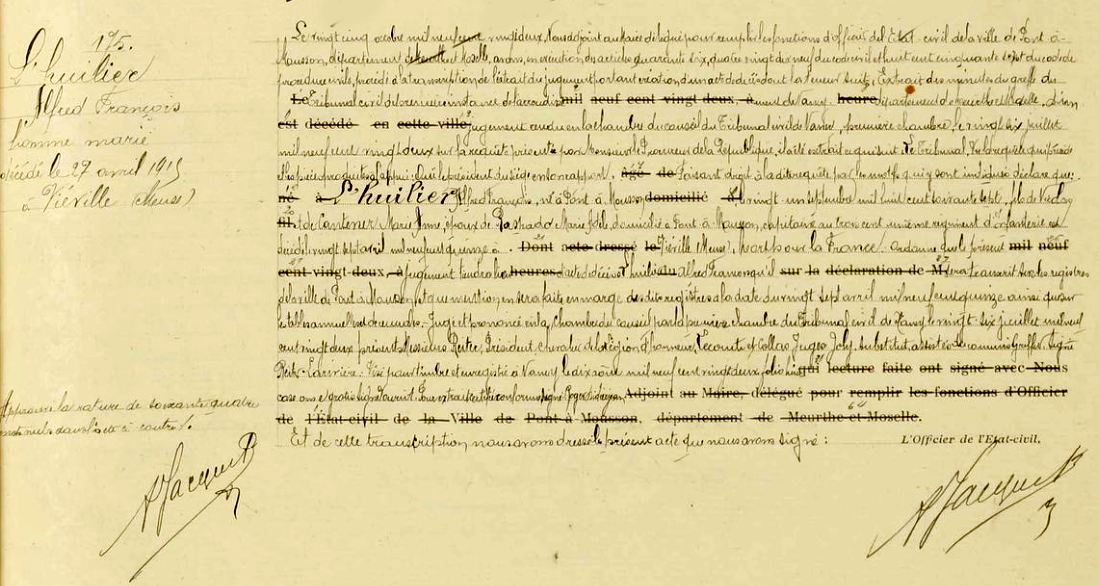 195.
L'huilier
Alfred François
homme marié
décédé le 27 avril 1915
à Viéville (Meuse)
Approuvé la rature de soixante quatre
mots nuls dans l'acte ci contre.
AJacquot
Le vingt cinq octobre mil neuf cent vingt deux, Nous adjoint au Maire délégué pour remplir les fonctions d'officier de l'Etat civil de la ville de Pont à-
Mousson, département de Meurthe et Moselle, avons, en exécution des articles quarante six, quatre vingt dix neuf du code civil et huit cent cinquante sept du code de
procédure civile, procédé à la transcription de l'extrait du jugement portant création d'un acte de décès dont la teneur suit: Extrait des minutes du greffe du
Le Tribunal civil de première instance de mil neuf cent vingt deux, à ment de Nancy, heure département de Meurthe et Moselle. D'un
est décédé en cette ville jugement rendu en la chambre du conseil du Tribunal civil de Nancy, première chambre, le vingt six juillet
mil neuf cent vingt deux sur la requête présentée par Monsieur le Procureur de la République, il a été extrait ce qui suit: Le Tribunal, Vu la requête qui précède
et les pièces produites à l'appui: Ouï le président du siège en son rapport. âgé de Faisant droit à la dite requête par les motifs qui y sont indiqués déclare que:
né à L'huilier Alfred François, né à Pont à Mousson domicilié le vingt un septembre mil huit cent soixante sept, fils de Nicolas
fils et de Contener Marie Anne, époux de Marie Adèle, domicilié à Pont à Mousson, capitaine au trois cent unième régiment d'infanterie est
décédé le vingt sept avril mil neuf cent quinze à Dont acte dressé le Viéville (Meuse), Mort pour la France. Ordonne que le présent mil neuf
cent vingt-deux, à jugement tiendra lieu heures d'acte de décès à L'huilier du Alfred François qu'il sur la déclaration de M sera transcrit sur les registres
de la ville de Pont à Mousson, et que mention en sera faite en marge des dits registres à la date du vingt sept avril mil neuf cent quinze ainsi que sur
les tables annuelles et décennales. Jugé et prononcé en la chambre du conseil par la première chambre du Tribunal civil de Nancy le vingt-six juillet mil neuf
cent vingt deux présents Messieurs Président, chevalier de la Légion d'honneur, Lecomte et Collas Juges, Joly, Substitut, assistés de commis Greffier. Signé
Visé pour timbre et enregistré à Nancy le dix août mil neuf cent vingt deux folio qui lecture faite ont signé avec Nous
case gratis signé Pour extrait certifié conforme signé Adjoint au Maire, délégué pour remplir les fonctions d'Officier
de l'Etat-civil de la Ville de Pont à Mousson, département de Meurthe-et-Moselle.
Et de cette transcription, nous avons dressé le présent acte que nous avons signé:
L'Officier de l'Etat-civil,
AJacquot